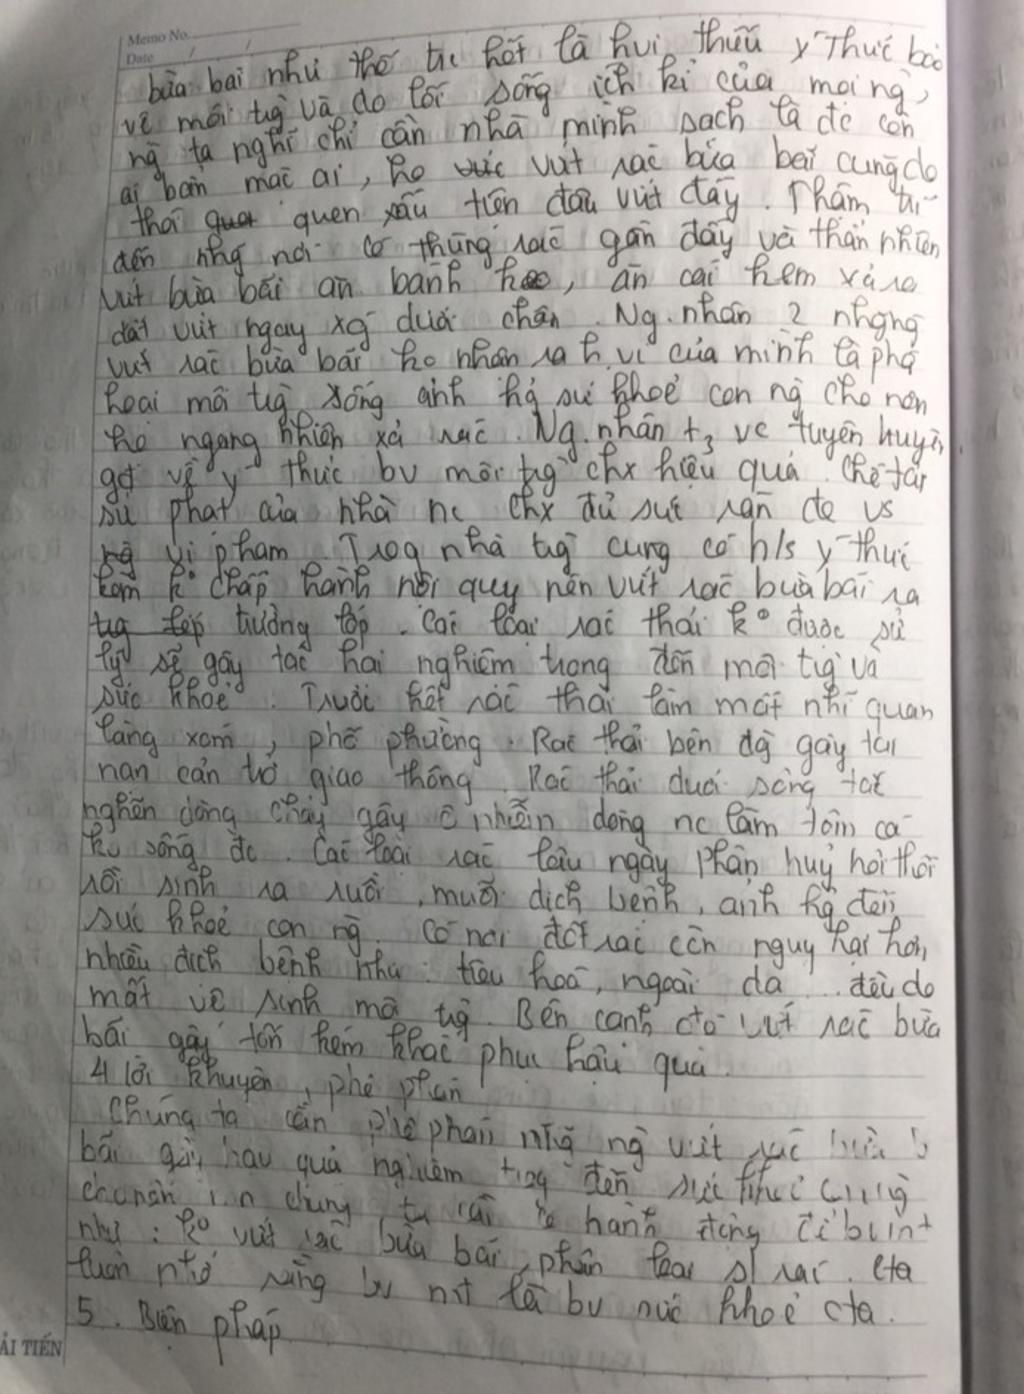 Memo No.
Date
bừa bai như thế trc hết là hụi thiếu ý thức bảo
vệ môi trg và do lối sống ích kỉ của mọi ng,
ng ta nghĩ chỉ cần nhà mình sạch là đc còn
ai bẩn mặc ai, họ vứt rác bừa bãi cũng do
thói quen xấu tiện đâu vứt đấy. Thậm trí
đến nhg nơi có thùng rác gần đấy vẫn thản nhiên
vứt bừa bãi ăn bánh kẹo, ăn cái kem xả ra
đất vứt ngay xg dưới chân. Ng.nhân 2 nhg ng
vứt rác bừa bãi họ nhận ra h.vi của mình là phá
hoại môi trg sống ảnh hg sứ khoẻ con ng cho nên
họ ngang nhiên xả rác. Ng.nhân t3 vc tuyên truyền
gd về ý thức bv môi trg chx hiệu quả. Chế tài
sử phạt của nhà nc chx đủ sức răn đe vs
ng vi phạm. Trog nhà trg cũng có h/s ý thức
kém k° chấp hành nội quy nên vứt rác bừa bãi ra
trường lớp. Các loại rác thải k° được sử
lý sẽ gây tác hại nghiêm trọng đến môi trg và
sức khoẻ. Trước hết rác thải làm mất mĩ quan
làng xóm, phố phường. Rác thải bên đg gây tai
nạn cản trở giao thông. Rác thải dưới sông tắc
nghẽn dòng chảy gây ô nhiễm dòng nc làm tôm cá
k° sống đc. Các loại rác lâu ngày phân huỷ hôi thối
rồi sinh ra ruồi, muỗi dịch bệnh, ảnh hg đến
sức khoẻ con ng. Có nơi đốt rác còn nguy hại hơn,
nhiều dịch bệnh như: tiêu hoá, ngoài da... đều do
mất vệ sinh môi trg. Bên cạnh đó vứt rác bừa
bãi gây tốn kém khắc phục hậu quả.
4 lời khuyên, phê phán
Chúng ta cần phê phán nhg ng vứt rác
bãi gây hậu quả nghiêm trọg đến sức
chúng ta cần có hành động
như: k° vứt rác bừa bãi, phân loại rác. Cta
luôn nhớ rằng bv mt là bv sức khoẻ cta.
5. Biện pháp
ẢI TIẾN